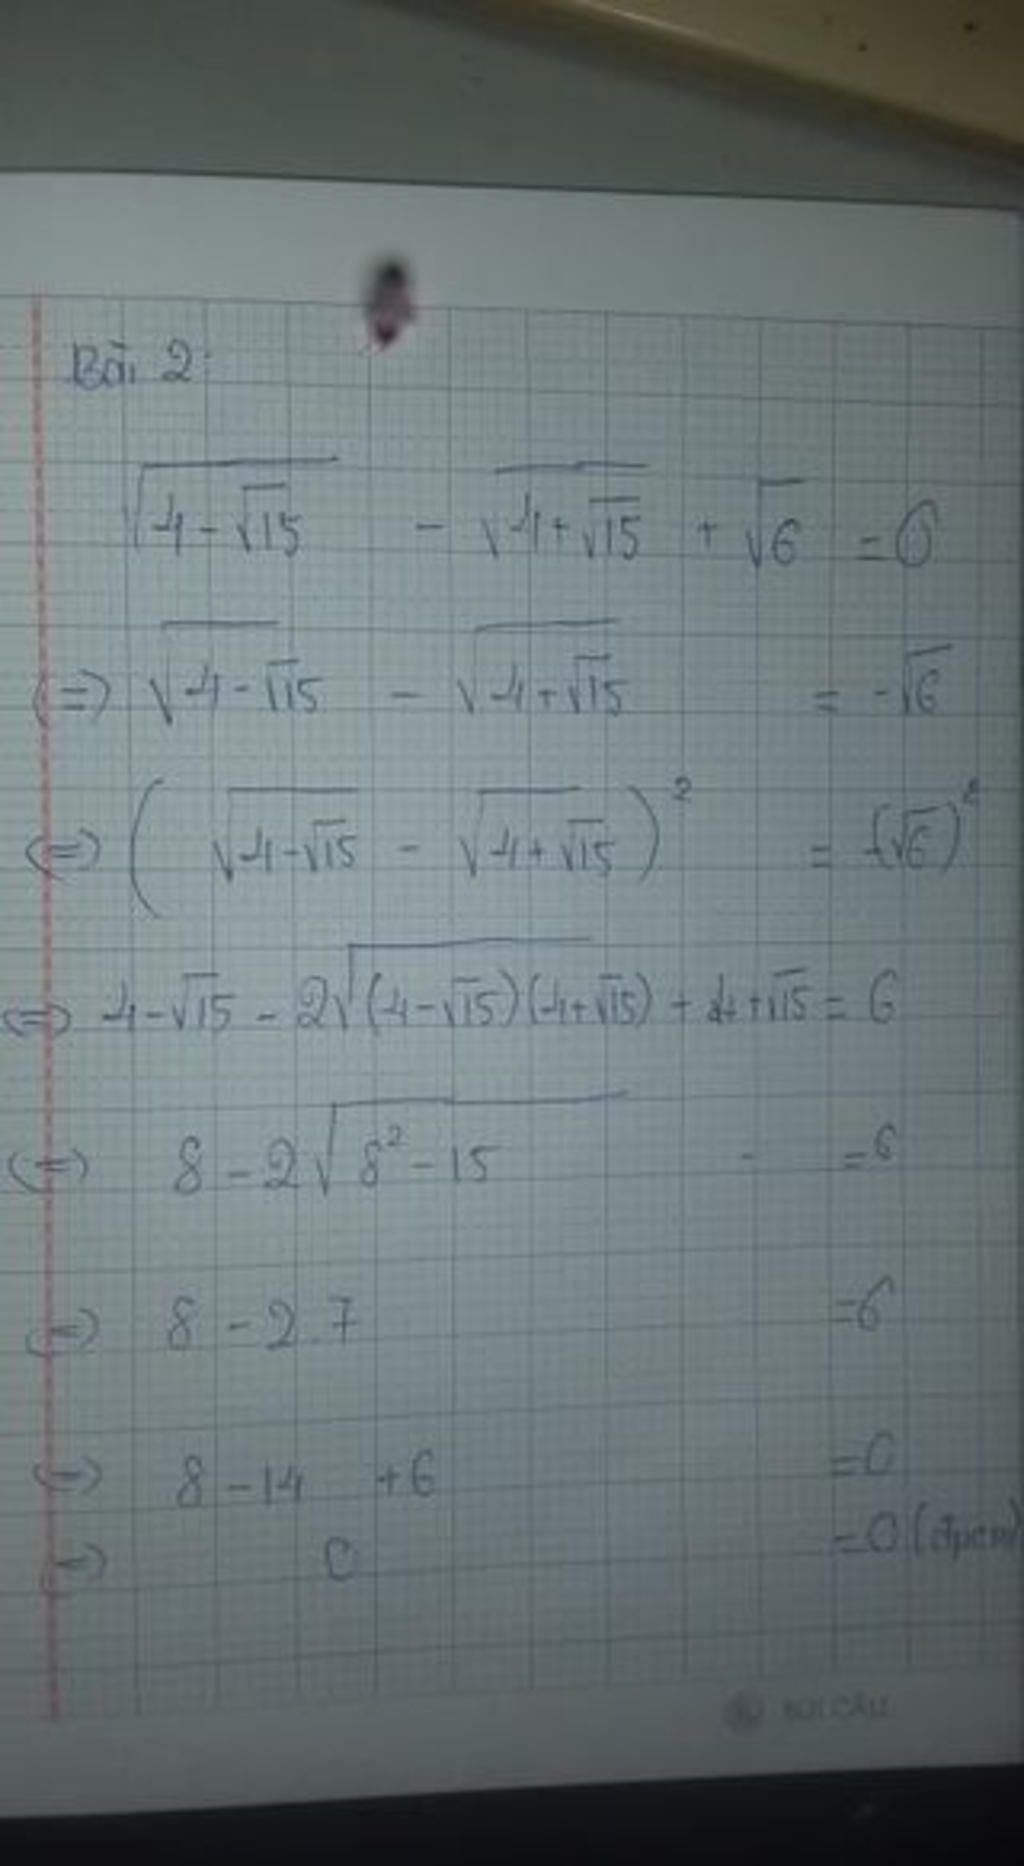 Bài 2:
√(4-√15) - √(4+√15) + √6 = 0
(=) √(4-√15) - √(4+√15) = -√6
(=) (√(4-√15) - √(4+√15))² = (-√6)²
(=) 4-√15 - 2√((4-√15)(4+√15)) + 4+√15 = 6
(=) 8 - 2√(8²-15) = 6
(=) 8 - 2.7 = 6
(=) 8 - 14 + 6 = 0
(=) 0 = 0 (đpcm)